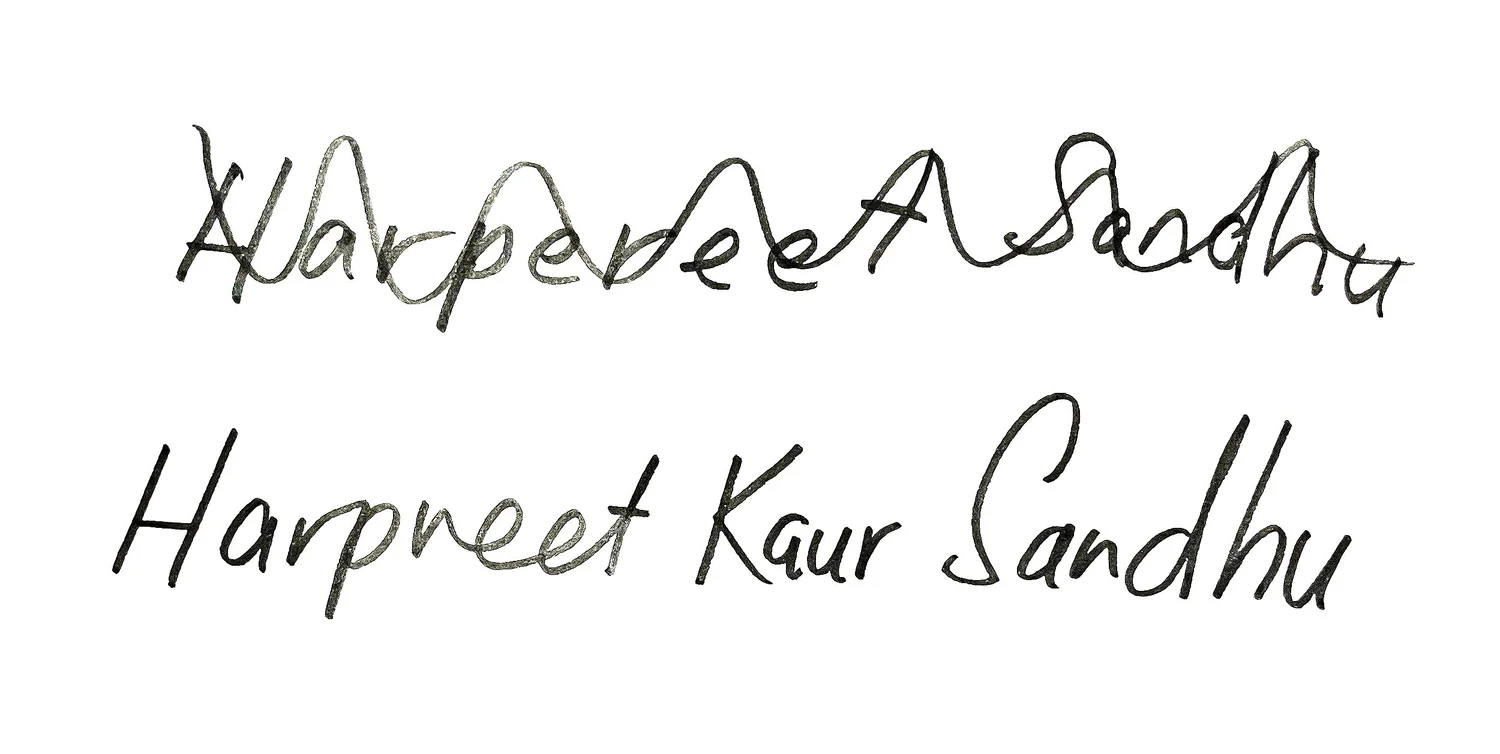 Harpereet Sandhu
Harpreet Kaur Sandhu